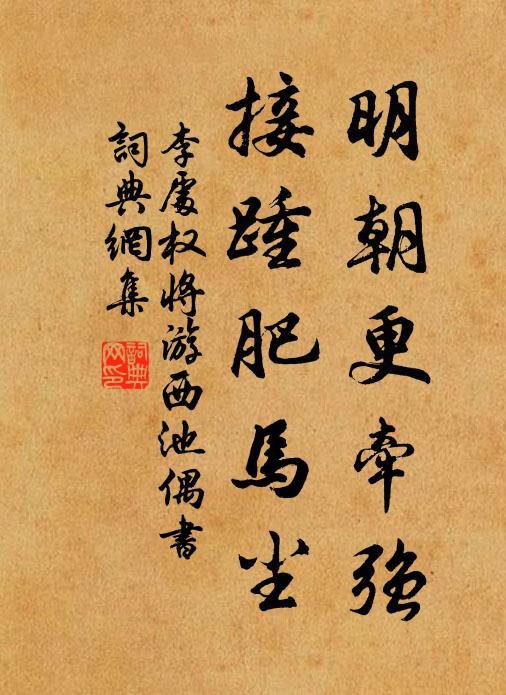 明朝更牽强
接踵肥馬尘
李處权将游西池偶書
詞典網集
詞典網印